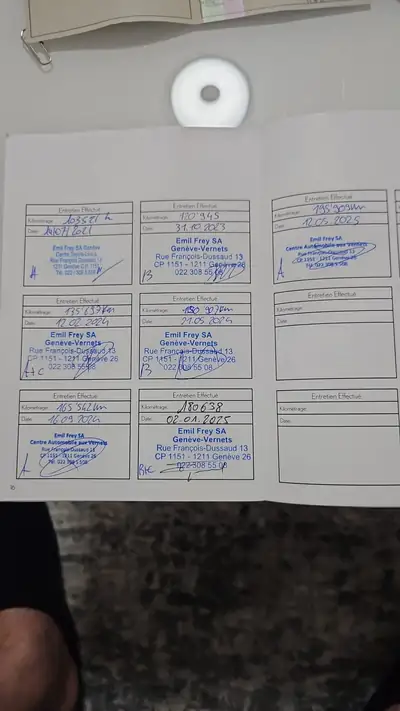 Entretien Effectué
Kilométrage:
Date:
Emil Frey SA Genève
Rue François-Dussaud 13
1211 Genève 26
A
Entretien Effectué
Kilométrage: 120'945
Date: 31.10.2023
Emil Frey SA
Genève-Vernets
Rue François-Dussaud 13
CP 1151 - 1211 Genève 26
022 308 55 08
B
Entretien Effectué
Kilométrage: 195'909km
Date: 12.05.2025
Emil Frey SA
Centre Automobile aux Vernets
Rue François-Dussaud 13
CP 1151 - 1211 Genève 26
A
Entretien Effectué
Kilométrage:
Date: 12.02.2024
Emil Frey SA
Genève-Vernets
Rue François-Dussaud 13
CP 1151 - 1211 Genève 26
022 308 55 08
A+C
Entretien Effectué
Kilométrage:
Date: 21.05.2024
Emil Frey SA
Genève-Vernets
Rue François-Dussaud 13
CP 1151 - 1211 Genève 26
022 308 55 08
B
Entretien Effectué
Kilométrage:
Date:
Entretien Effectué
Kilométrage: 165'542km
Date: 16.09.2024
Emil Frey SA
Centre Automobile aux Vernets
Rue François-Dussaud 13
CP 1151 - 1211 Genève 26
A
Entretien Effectué
Kilométrage: 180638
Date: 02.01.2025
Emil Frey SA
Genève-Vernets
Rue François-Dussaud 13
CP 1151 - 1211 Genève 26
022 308 55 08
Entretien Effectué
Kilométrage:
Date: